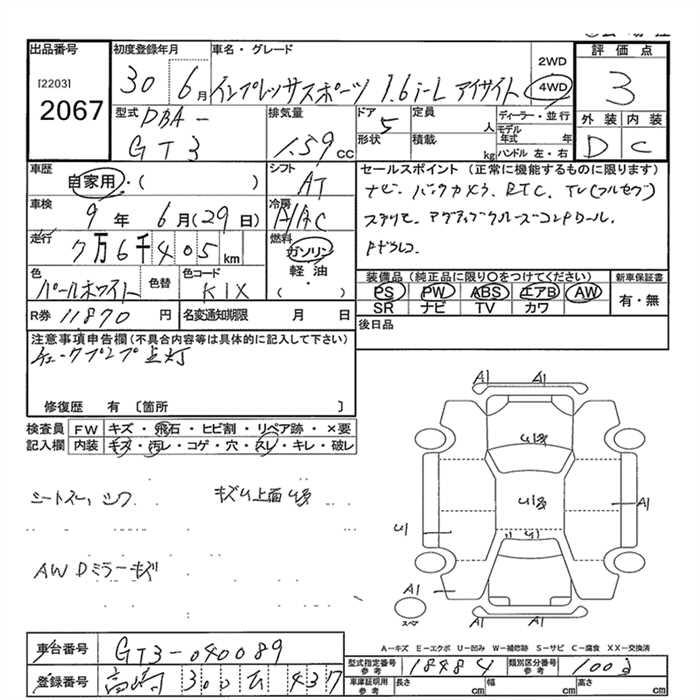 出品番号
[2203]
2067
初度登録年月
30 6月
車名・グレード
インプレッサスポーツ 1.6i-L アイサイト
2WD
4WD
評価点
3
外装 内装
D C
型式
DBA-
GT3
排気量
1.59cc
ドア
5
形状
定員
人
積載
kg
ディーラー・並行
モデル
年式 年
ハンドル 左・右
車歴
自家用・( )
シフト
AT
車検
9年 6月(29日)
冷房
AAC
走行
7万6千405km
燃料
ガソリン
軽油
・
( )
色
パールホワイト
色替
色コード
K1X
R券 11870円
名変通知期限 月 日
セールスポイント(正常に機能するものに限ります)
ナビ. バックカメラ. ETC. TV(フルセグ)
ステリモ. アダプティブクルーズコントロール.
装備品(純正品に限り○をつけてください)
PS PW ABS エアB AW
SR ナビ TV カワ
新車保証書
有・無
後日品
注意事項申告欄(不具合内容等は具体的に記入して下さい)
チェックランプ点灯
修復歴 有 〔箇所 〕
検査員
記入欄
FW キズ・飛石・ヒビ割・リペア跡・×要
内装 キズ・汚レ・コゲ・穴・スレ・キレ・破レ
シートスレ、シワ
AWDミラーキズ
A1
A1
A1
U1
A1
A1
スペア
A-キズ E-エクボ U-凹み W-補修跡 S-サビ C-腐食 XX-交換済
車台番号
GT3-040089
登録番号
高崎 300 437
型式指定番号
参考
18484
類別区分番号
参考
車庫証明用
参考
長さ cm
幅 cm
高さ cm